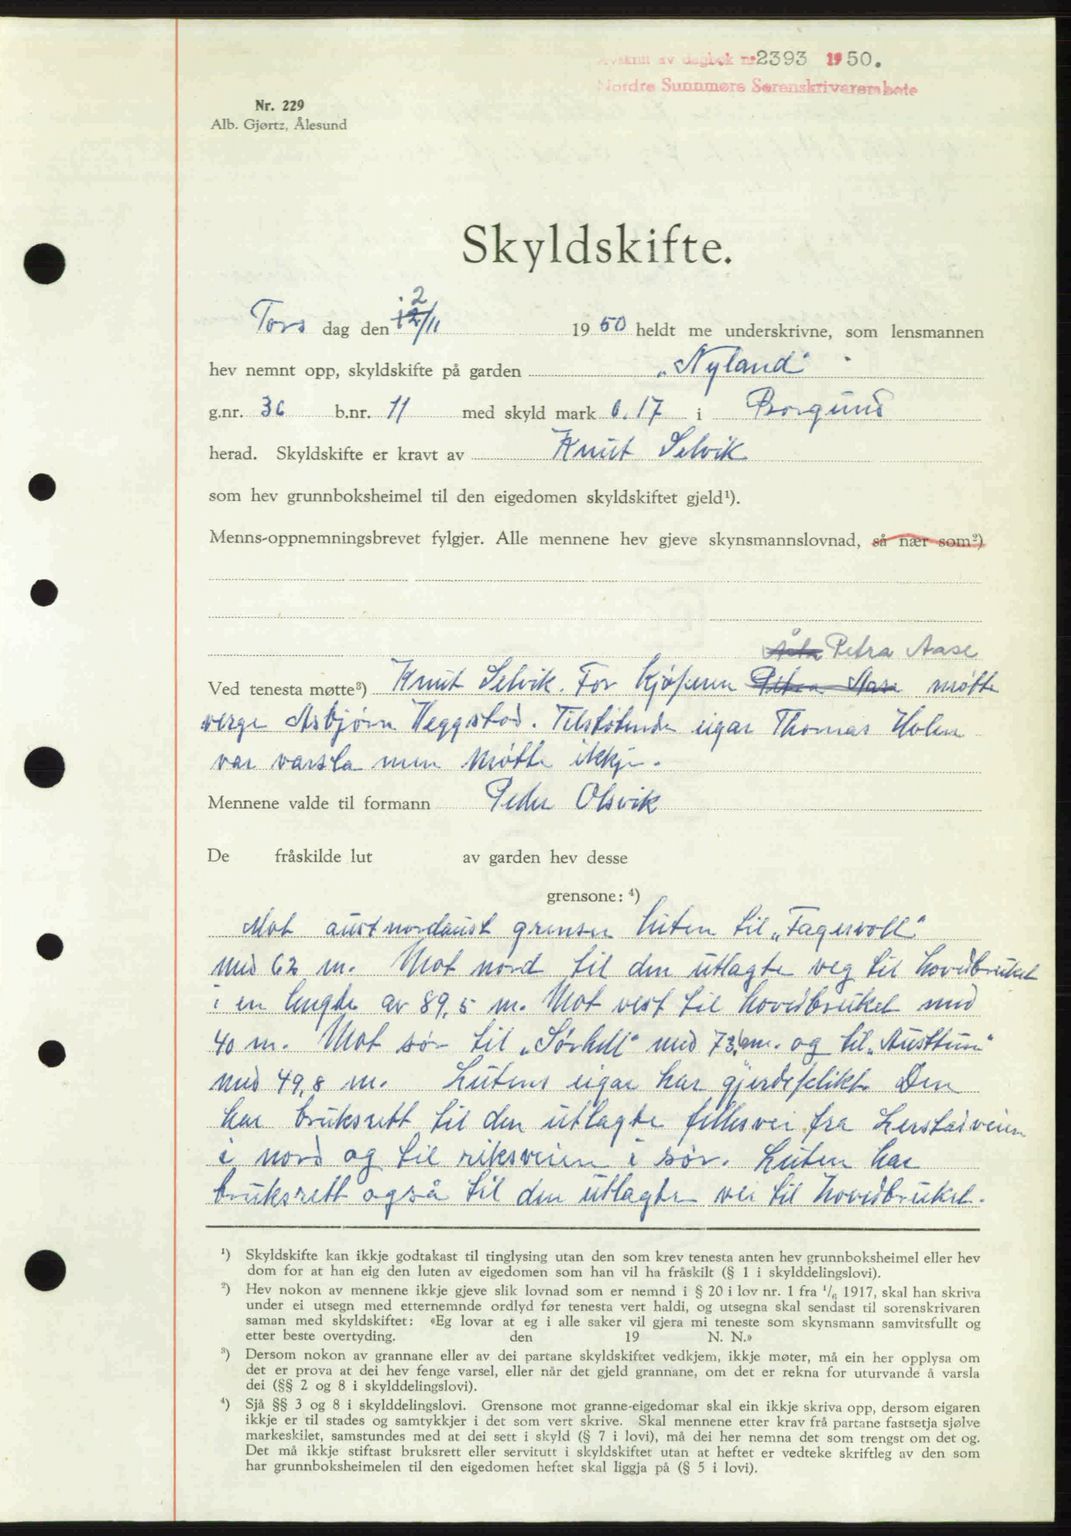 Avskrift av dagbok nr. 2393 1950.
Nordre Sunnmøre Sorenskrivarembete
Nr. 229
Alb. Gjørtz, Ålesund
Skyldskifte.
Tors dag den 2/11 1950 heldt me underskrivne, som lensmannen
hev nemnt opp, skyldskifte på garden „Nyland"
g.nr. 36 b.nr. 11 med skyld mark 0.17 i Borgund
herad. Skyldskifte er kravt av Knut Selvik
som hev grunnboksheimel til den eigedomen skyldskiftet gjeld¹).
Menns-oppnemningsbrevet fylgjer. Alle mennene hev gjeve skynsmannslovnad, så nær som²)
Petra Aase
Ved tenesta møtte³) Knut Selvik. For kjøperen Petra Aase møtte
verge Asbjørn Heggstad. Tilstøtende eigar Thomas Holen
var varsla men møtte ikkje.
Mennene valde til formann Peder Olsvik
De fråskilde lut av garden hev desse
grensone: ⁴)
Mot aust nordaust grenser luten til „Fagervoll"
med 62 m. Mot nord til den utlagte veg til hovedbruket
i en lengde av 89,5 m. Mot vest til hovedbruket med
40 m. Mot sør til „Sørhell" med 73, m. og til „Austtun"
med 49,8 m. Lutens eigar har gjerdeplikt. Den
har bruksrett til den utlagte fellesvei fra Lerstadveien
i nord og til riksveien i sør. Luten har
bruksrett også til den utlagte vei til hovedbruket.
¹) Skyldskifte kan ikkje godtakast til tinglysing utan den som krev tenesta anten hev grunnboksheimel eller hev
dom for at han eig den luten av eigedomen som han vil ha fråskilt (§ 1 i skylddelingslovi).
²) Hev nokon av mennene ikkje gjeve slik lovnad som er nemnd i § 20 i lov nr. 1 fra ¹/₆ 1917, skal han skriva
under ei utsegn med etternemnde ordlyd før tenesta vert haldi, og utsegna skal sendast til sorenskrivaren
saman med skyldskiftet: «Eg lovar at eg i alle saker vil gjera mi teneste som skynsmann samvitsfullt og
etter beste overtyding. den 19 N. N.»
³) Dersom nokon av grannane eller av dei partane skyldskiftet vedkjem, ikkje møter, må ein her opplysa om
det er prova at dei hev fenge varsel, eller når det gjeld grannane, om det er rekna for uturvande å varsla
dei (§§ 2 og 8 i skylddelingslovi).
⁴) Sjå §§ 3 og 8 i skylddelingslovi. Grensone mot granne-eigedomar skal ein ikkje skriva opp, dersom eigaren
ikkje er til stades og samtykkjer i det som vert skrive. Skal mennene etter krav frå partane fastsetja sjølve
markeskilet, samstundes med at dei sett i skyld (§ 7 i lovi), må dei her nemna det som trengst om det og.
Det må ikkje stiftast bruksrett eller servitutt i skyldskiftet utan at heftet er vedteke skriftleg av den som
har grunnboksheimelen til den eigedomen heftet skal liggja på (§ 5 i lovi).